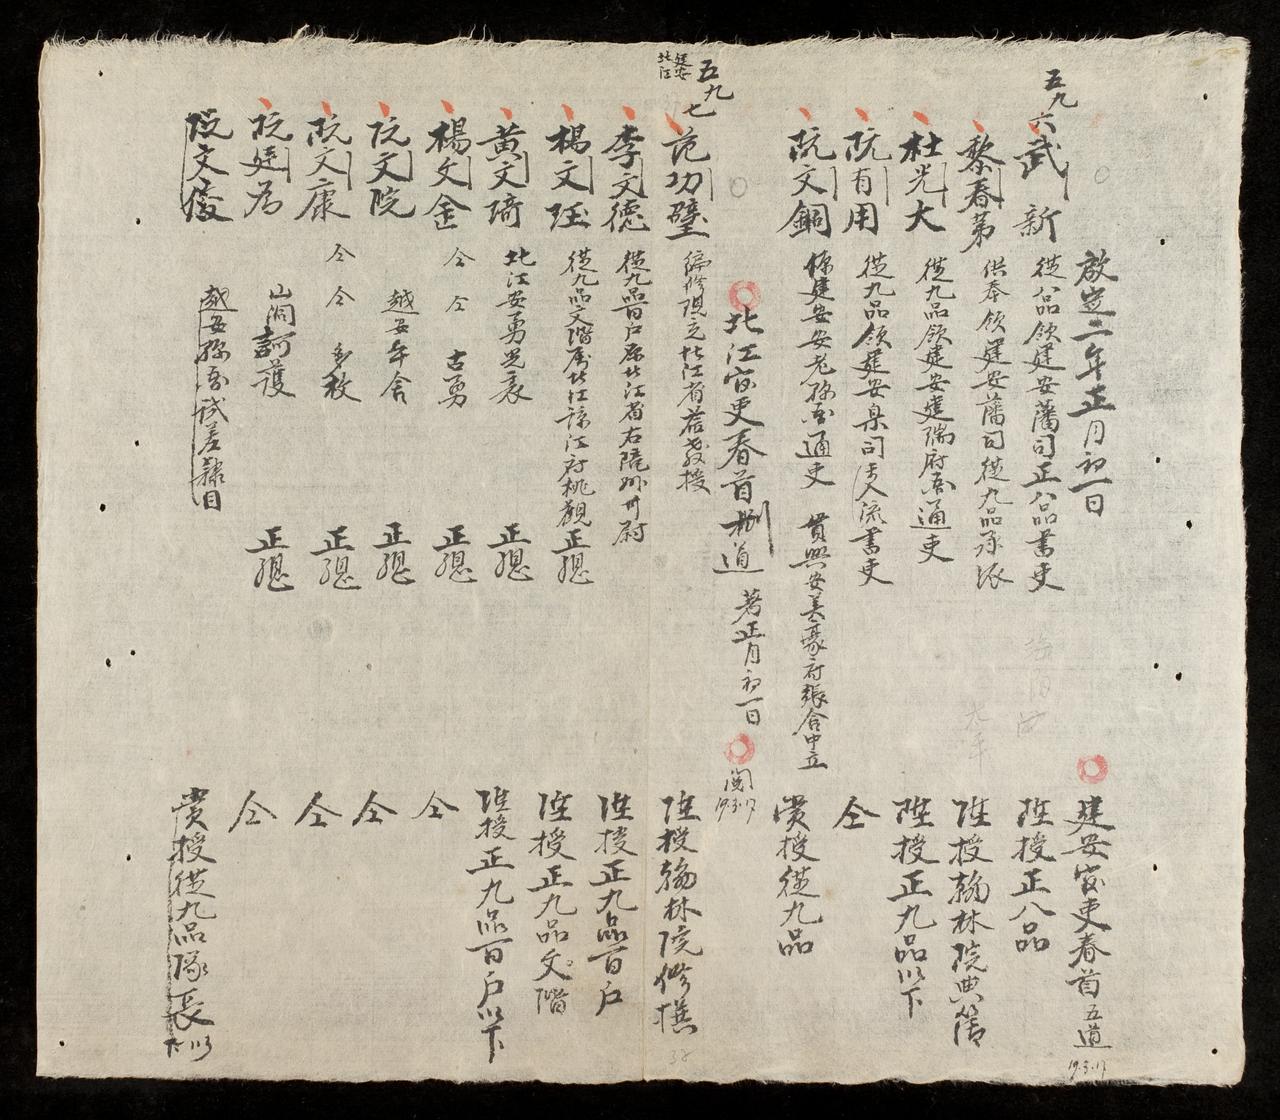 五九六
啟定二年正月初一日
建安官吏春首五道
19.3.17
武新 從八品領建安藩司正八品書吏 陞授正八品
黎春第 供奉領建安藩司從九品承 陞授翰林院典簿
杜光大 從九品領建安建瑞府通吏 陞授正九品以下
阮有用 從九品領建安臬司未入流書吏 仝
阮文銅 建安安老 通吏 貫興安美豪府張合中立 賞授從九品
五九七
建安
北江
北江官吏春首捌道 著正月初一日
閱
19.3.17
范功璧 編修現充北江省 教授 陞授翰林院修撰
李文德 從九品百戶 北江省右隴 州尉 陞授正九品百戶
楊文珏 從九品文階 北江諒江府桃觀正總 陞授正九品文階
黃文琦 北江安勇 正總 陞授正九品百戶以下
楊文金 仝 仝 古勇 正總 仝
阮文院 越安年舍 正總 仝
阮文康 仝 仝 多枚 正總 仝
阮廷為 山洞訶護 正總 仝
阮文儀 越安 試差隸目 賞授從九品隊長
38